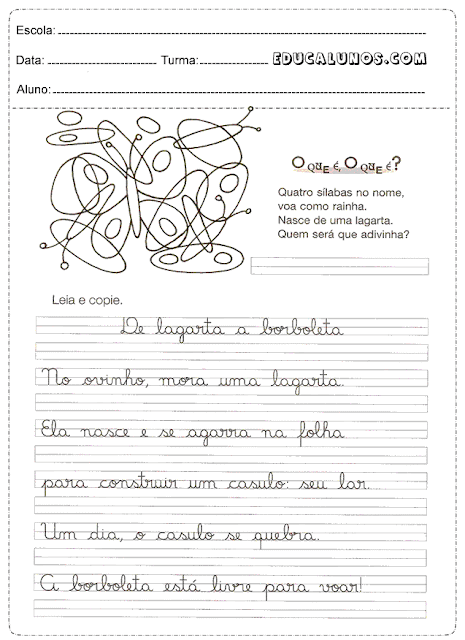 Escola:
Data: Turma: EDUCALUNOS.COM
Aluno:
O QUE É, O QUE É?
Quatro sílabas no nome,
voa como rainha.
Nasce de uma lagarta.
Quem será que adivinha?
Leia e copie.
De lagarta a borboleta
No ovinho, mora uma lagarta.
Ela nasce e se agarra na folha
para construir um casulo: seu lar.
Um dia, o casulo se quebra.
A borboleta está livre para voar!